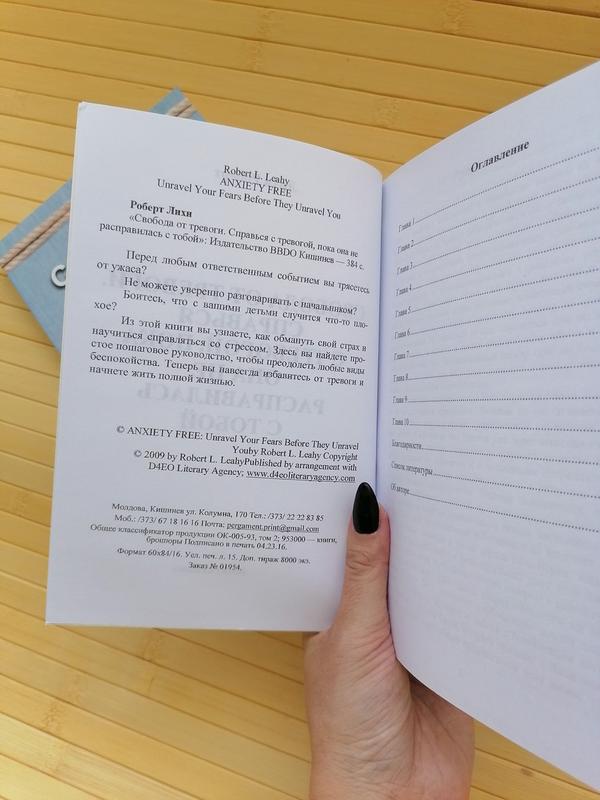 Robert L. Leahy
ANXIETY FREE
Unravel Your Fears Before They Unravel You
Роберт Лихи
«Свобода от тревоги. Справься с тревогой, пока она не
расправилась с тобой»: Издательство BBDO Кишинев — 384 с.
Перед любым ответственным событием вы трясетесь
от ужаса?
Не можете уверенно разговаривать с начальником?
Боитесь, что с вашими детьми случится что-то пло-
хое?
Из этой книги вы узнаете, как обмануть свой страх и
научиться справляться со стрессом. Здесь вы найдете про-
стое пошаговое руководство, чтобы преодолеть любые виды
беспокойства. Теперь вы навсегда избавитесь от тревоги и
начнете жить полной жизнью.
© ANXIETY FREE: Unravel Your Fears Before They Unravel
Youby Robert L. Leahy Copyright
© 2009 by Robert L. LeahyPublished by arrangement with
D4EO Literary Agency; www.d4eoliteraryagency.com
Молдова, Кишинев ул. Колумна, 170 Тел.: /373/ 22 22 83 85
Моб.: /373/ 67 18 16 16 Почта: pergament.print@gmail.com
Общее классификатор продукции ОК-005-93, том 2; 953000 — книги,
брошюры Подписано в печать 04.23.16.
Формат 60х84/16. Усл. печ. л. 15. Доп. тираж 8000 экз.
Заказ № 01954.
Оглавление
Глава 1
Глава 2
Глава 3
Глава 4
Глава 5
Глава 6
Глава 7
Глава 8
Глава 9
Глава 10
Благодарности
Список литературы
Об авторе